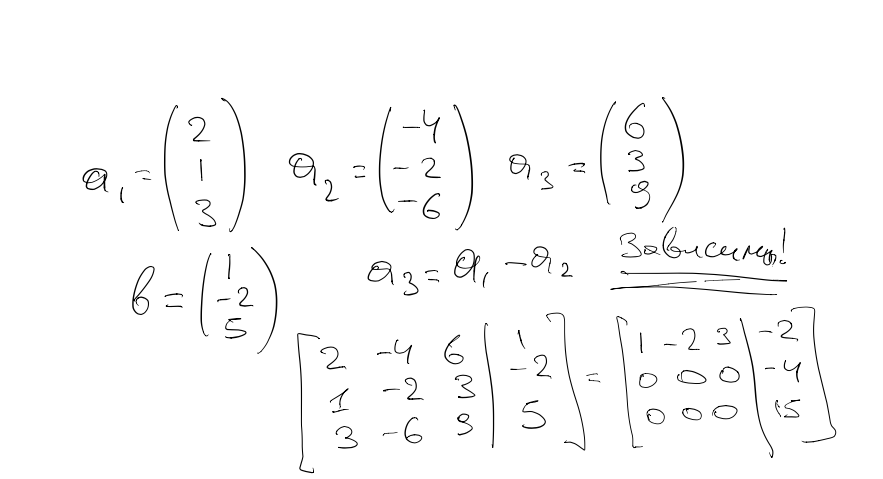 a₁ = (2 1 3) a₂ = (-4 -2 -6) a₃ = (6 3 9)
b = (1 -2 5) a₃ = a₁ - a₂ Зависимы!
[2 -4 6 | 1] = [1 -2 3 | -2]
[1 -2 3 | -2] [0 0 0 | -4]
[3 -6 9 | 5] [0 0 0 | 15]